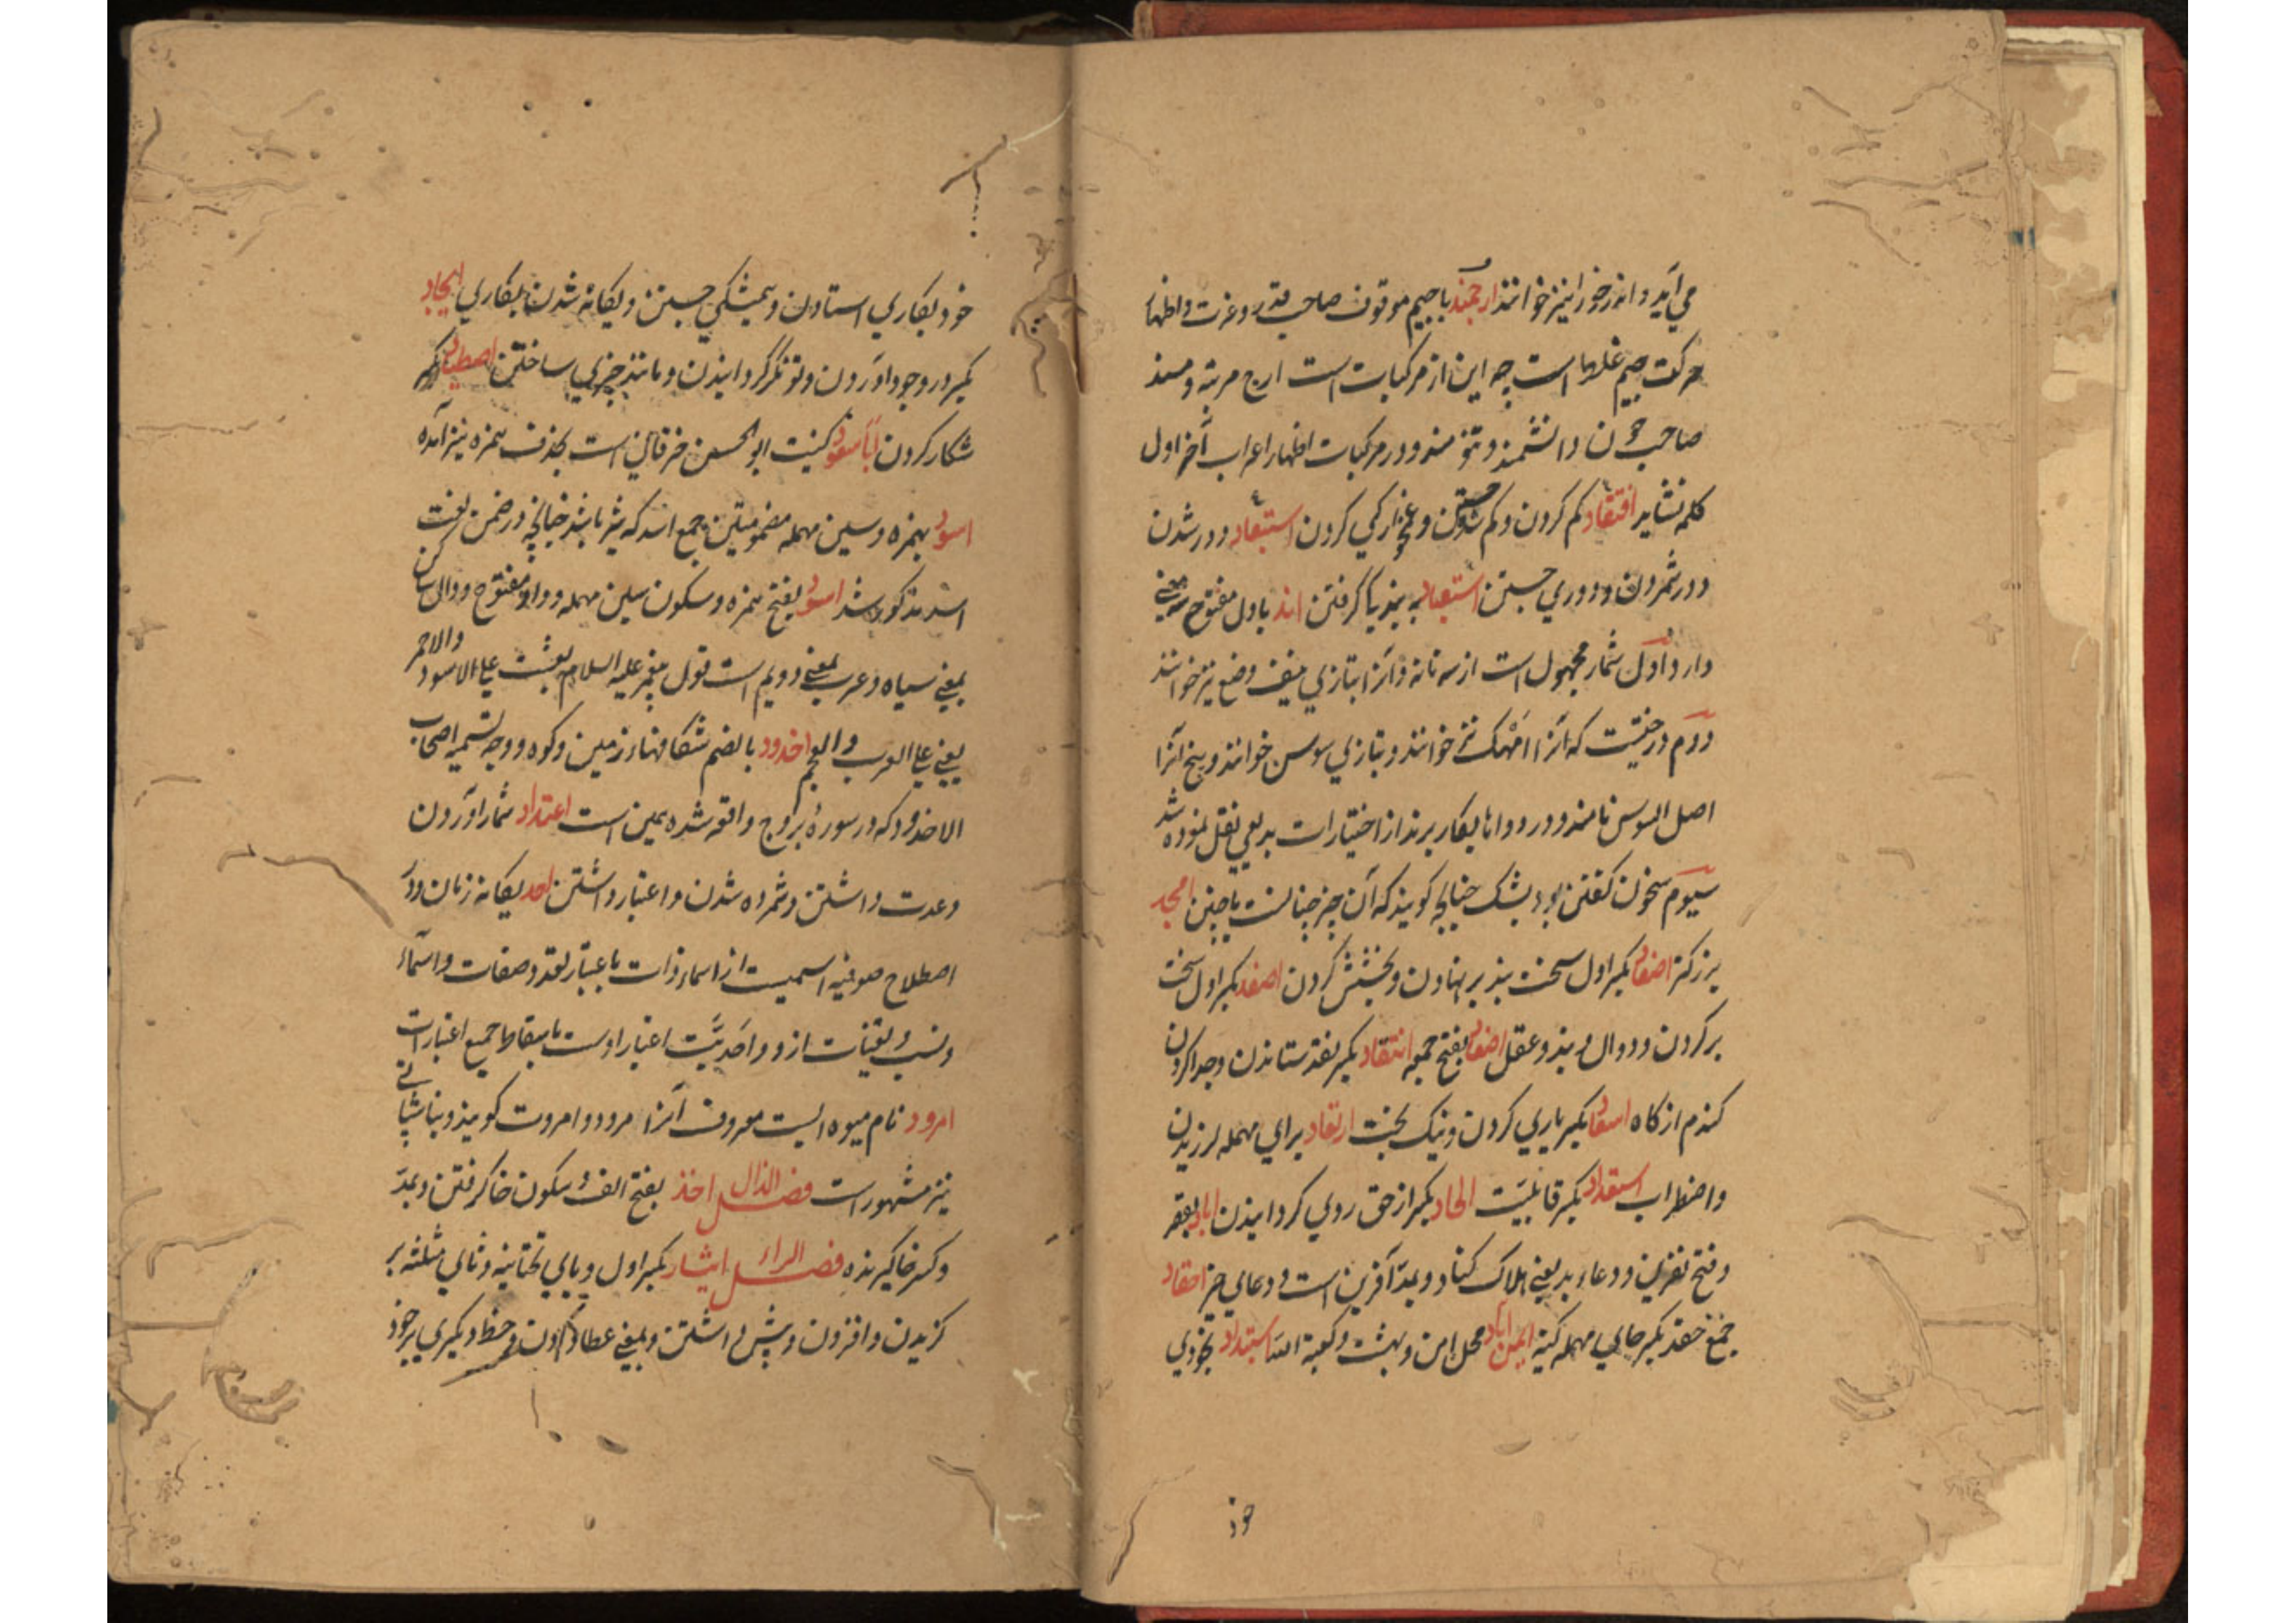 می آید و اندرخور را نیز خوانند ارجمند با جیم موقوف صاحب قدر و عزت و اظهار
حرکت جیم غلط است چه این از مرکبات است ارج مرتبه و مند
صاحب چون دانشمند و تنومند و در مرکبات اظهار اعراب آخر اول
کلمه نشاید افتقاد کم کردن و کم شدن و غمخوارکی کردن استبعاد دور شدن
دور شمردن و دوری جستن استعباد به بندکی گرفتن اند باول مفتوح سه معنی
دارد اول شمار مجهول است از سه تا نه و آنرا بتازی نیف و بضع نیز خوانند
دوم درختیست که آنرا خوانند و بتازی سوس خوانند و بیخ آنرا
اصل السوس نامند و در دواها بکار برند از اختیارات بدیعی نقل نموده شد
سیوم سخن کفتن بود بشک چنانچه کویند که آن چیز چنانست یا چنین امجد
بزرکتر اصفاد بکسر اول سخت بند بر نهادن و بخشش کردن اصفد بکسر اول سخت
بر کردن و دوال و بند و عقل اصفاد بفتح جمع انتقاد بکسر نقد ستاندن و جدا کردن
کندم از کاه اسعاد بکسر یاری کردن و نیک بخت ارتعاد برای مهمله لرزیدن
و اضطراب استعداد بکسر قابلیت الحاد بکسر از حق روی کردانیدن اباد بقصر
و فتح نفرین و دعاء بد یعنی هلاک کناد و بمد آفرین است و دعای خیر احقاد
جمع حقد بکسر حای مهمله کینه ایمن آباد محل امن و بهشت و کعبة الله استبداد بخودی
خود
خود بکاری استادن و همیشکی جستن و یکانه شدن بکاری ایجاد
بکسر در وجود آوردن و توانگر کردانیدن و مانند چیزی ساختن اصطیاد بکسر
شکار کردن کنیت ابو الحسن خرقانی است بحذف همزه نیز آمده
اسد بهمزه و سین مهمله مضمومتین جمع اسد که شیر باشد چنانچه در ضمن لغت
اسد مذکور شد اسود بفتح همزه و سکون سین مهمله و واو مفتوح و دال ساکن
بمعنی سیاه و عرب بمعنی دویم است قول پیغمبر علیه السلام بعثت علی الاسود والاحمر
یعنی علی العرب والعجم اخدود بالضم شکافهاء زمین و کوه و وجه تسمیه اصحاب
الاخدود که در سورهٔ بروج واقع شده همین است اعتداد شمار آوردن
و عدت داشتن و شمرده شدن و اعتبار داشتن احد یکانه زمان و در
اصطلاح صوفیه اسمیست از اسماء ذات باعتبار تعدد صفات و اسماء
و نسب و تعینات ازو و احدیت اعتبار اوست باسقاط جمیع اعتبارات
امرود نام میوه ایست معروف آنرا مرود و امروت کویند و بناشپاتی
نیز مشهور است فصل الذال اخذ بفتح الف و سکون خا کرفتن و بمد
و کسر خا کیرنده فصل الراء ایثار بکسر اول و یای تحتانیه و ثای مثلثه بر
کزیدن و افزون و پیش داشتن و بمعنی عطا دادن و حظ دیکری بر خود